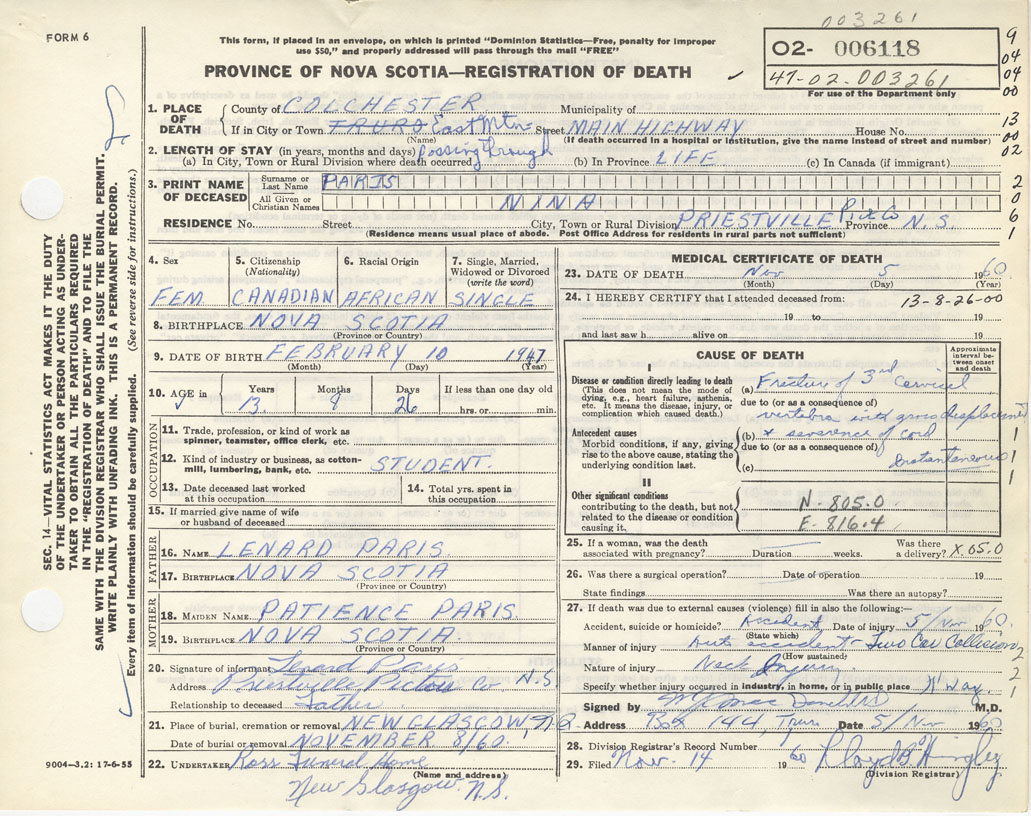 003261
FORM 6
This form, if placed in an envelope, on which is printed "Dominion Statistics—Free, penalty for improper
use $50," and properly addressed will pass through the mail "FREE"
PROVINCE OF NOVA SCOTIA—REGISTRATION OF DEATH
02- 006118
47-02-003261
For use of the Department only
9
04
04
00
13
00
02
2
0
6
1
SEC. 14—VITAL STATISTICS ACT MAKES IT THE DUTY
OF THE UNDERTAKER OR PERSON ACTING AS UNDER-
TAKER TO OBTAIN ALL THE PARTICULARS REQUIRED
IN THE "REGISTRATION OF DEATH" AND TO FILE THE
SAME WITH THE DIVISION REGISTRAR WHO SHALL ISSUE THE BURIAL PERMIT.
WRITE PLAINLY WITH UNFADING INK. THIS IS A PERMANENT RECORD.
Every item of information should be carefully supplied. (See reverse side for instructions.)
1. PLACE OF DEATH
County of COLCHESTER Municipality of
If in City or Town TRURO East Mtn Street MAIN HIGHWAY House No.
(Name) (If death occurred in a hospital or institution, give the name instead of street and number)
2. LENGTH OF STAY (in years, months and days) Passing through
(a) In City, Town or Rural Division where death occurred (b) In Province LIFE (c) In Canada (if immigrant)
3. PRINT NAME OF DECEASED
Surname or Last Name PARIS
All Given or Christian Names NINA
RESIDENCE No. Street City, Town or Rural Division PRIESTVILLE Pict Co Province N.S.
(Residence means usual place of abode. Post Office Address for residents in rural parts not sufficient)
4. Sex
FEM
5. Citizenship
(Nationality)
CANADIAN
6. Racial Origin
AFRICAN
7. Single, Married,
Widowed or Divorced
(write the word)
SINGLE
8. BIRTHPLACE NOVA SCOTIA
(Province or Country)
9. DATE OF BIRTH FEBRUARY 10 1947
(Month) (Day) (Year)
10. AGE in
Years Months Days If less than one day old
13 8 26 hrs. or min.
OCCUPATION
11. Trade, profession, or kind of work as
spinner, teamster, office clerk, etc.
12. Kind of industry or business, as cotton-
mill, lumbering, bank, etc. STUDENT.
13. Date deceased last worked
at this occupation
14. Total yrs. spent in
this occupation
15. If married give name of wife
or husband of deceased
FATHER
16. NAME LENARD PARIS.
17. BIRTHPLACE NOVA SCOTIA
(Province or Country)
MOTHER
18. MAIDEN NAME PATIENCE PARIS.
19. BIRTHPLACE NOVA SCOTIA
(Province or Country)
20. Signature of informant Lenard Paris
Address Priestville Pictou Co N.S.
Relationship to deceased father
21. Place of burial, cremation or removal NEW GLASGOW, N.S.
Date of burial or removal NOVEMBER 8/60.
22. UNDERTAKER Ross Funeral Home
(Name and address)
New Glasgow. N.S.
9004—3.2: 17-6-55
MEDICAL CERTIFICATE OF DEATH
23. DATE OF DEATH Nov 5 1960
(Month) (Day) (Year)
24. I HEREBY CERTIFY that I attended deceased from: 13-8-26-00
19 to 19
and last saw h alive on 19
CAUSE OF DEATH
Approximate
interval be-
tween onset
and death
I
Disease or condition directly leading to death
(This does not mean the mode of
dying, e.g., heart failure, asthenia,
etc. It means the disease, injury, or
complication which caused death.)
(a) Fracture of 3rd Cervical
due to (or as a consequence of)
vertebra with gross displacement
Antecedent causes
Morbid conditions, if any, giving
rise to the above cause, stating the
underlying condition last.
(b) & severence of cord
due to (or as a consequence of)
Instantaneous
(c)
1
1
1
1
II
Other significant conditions
contributing to the death, but not
related to the disease or condition
causing it.
N-805.0
E-816.4
25. If a woman, was the death
associated with pregnancy? Duration weeks. Was there
a delivery? X 05.0
26. Was there a surgical operation? Date of operation 19
State findings Was there an autopsy?
27. If death was due to external causes (violence) fill in also the following:—
Accident, suicide or homicide? Accident Date of injury 5/Nov 1960.
(State which)
Manner of injury Auto accident - Two Car Collision
(How sustained)
Nature of injury Neck Injury
Specify whether injury occurred in industry, in home, or in public place H'way.
2
2
1
Signed by M.D.
Address Box 144, Truro Date 5/Nov 1960
28. Division Registrar's Record Number
29. Filed Nov. 14 1960 Lloyd Hingley
(Division Registrar)